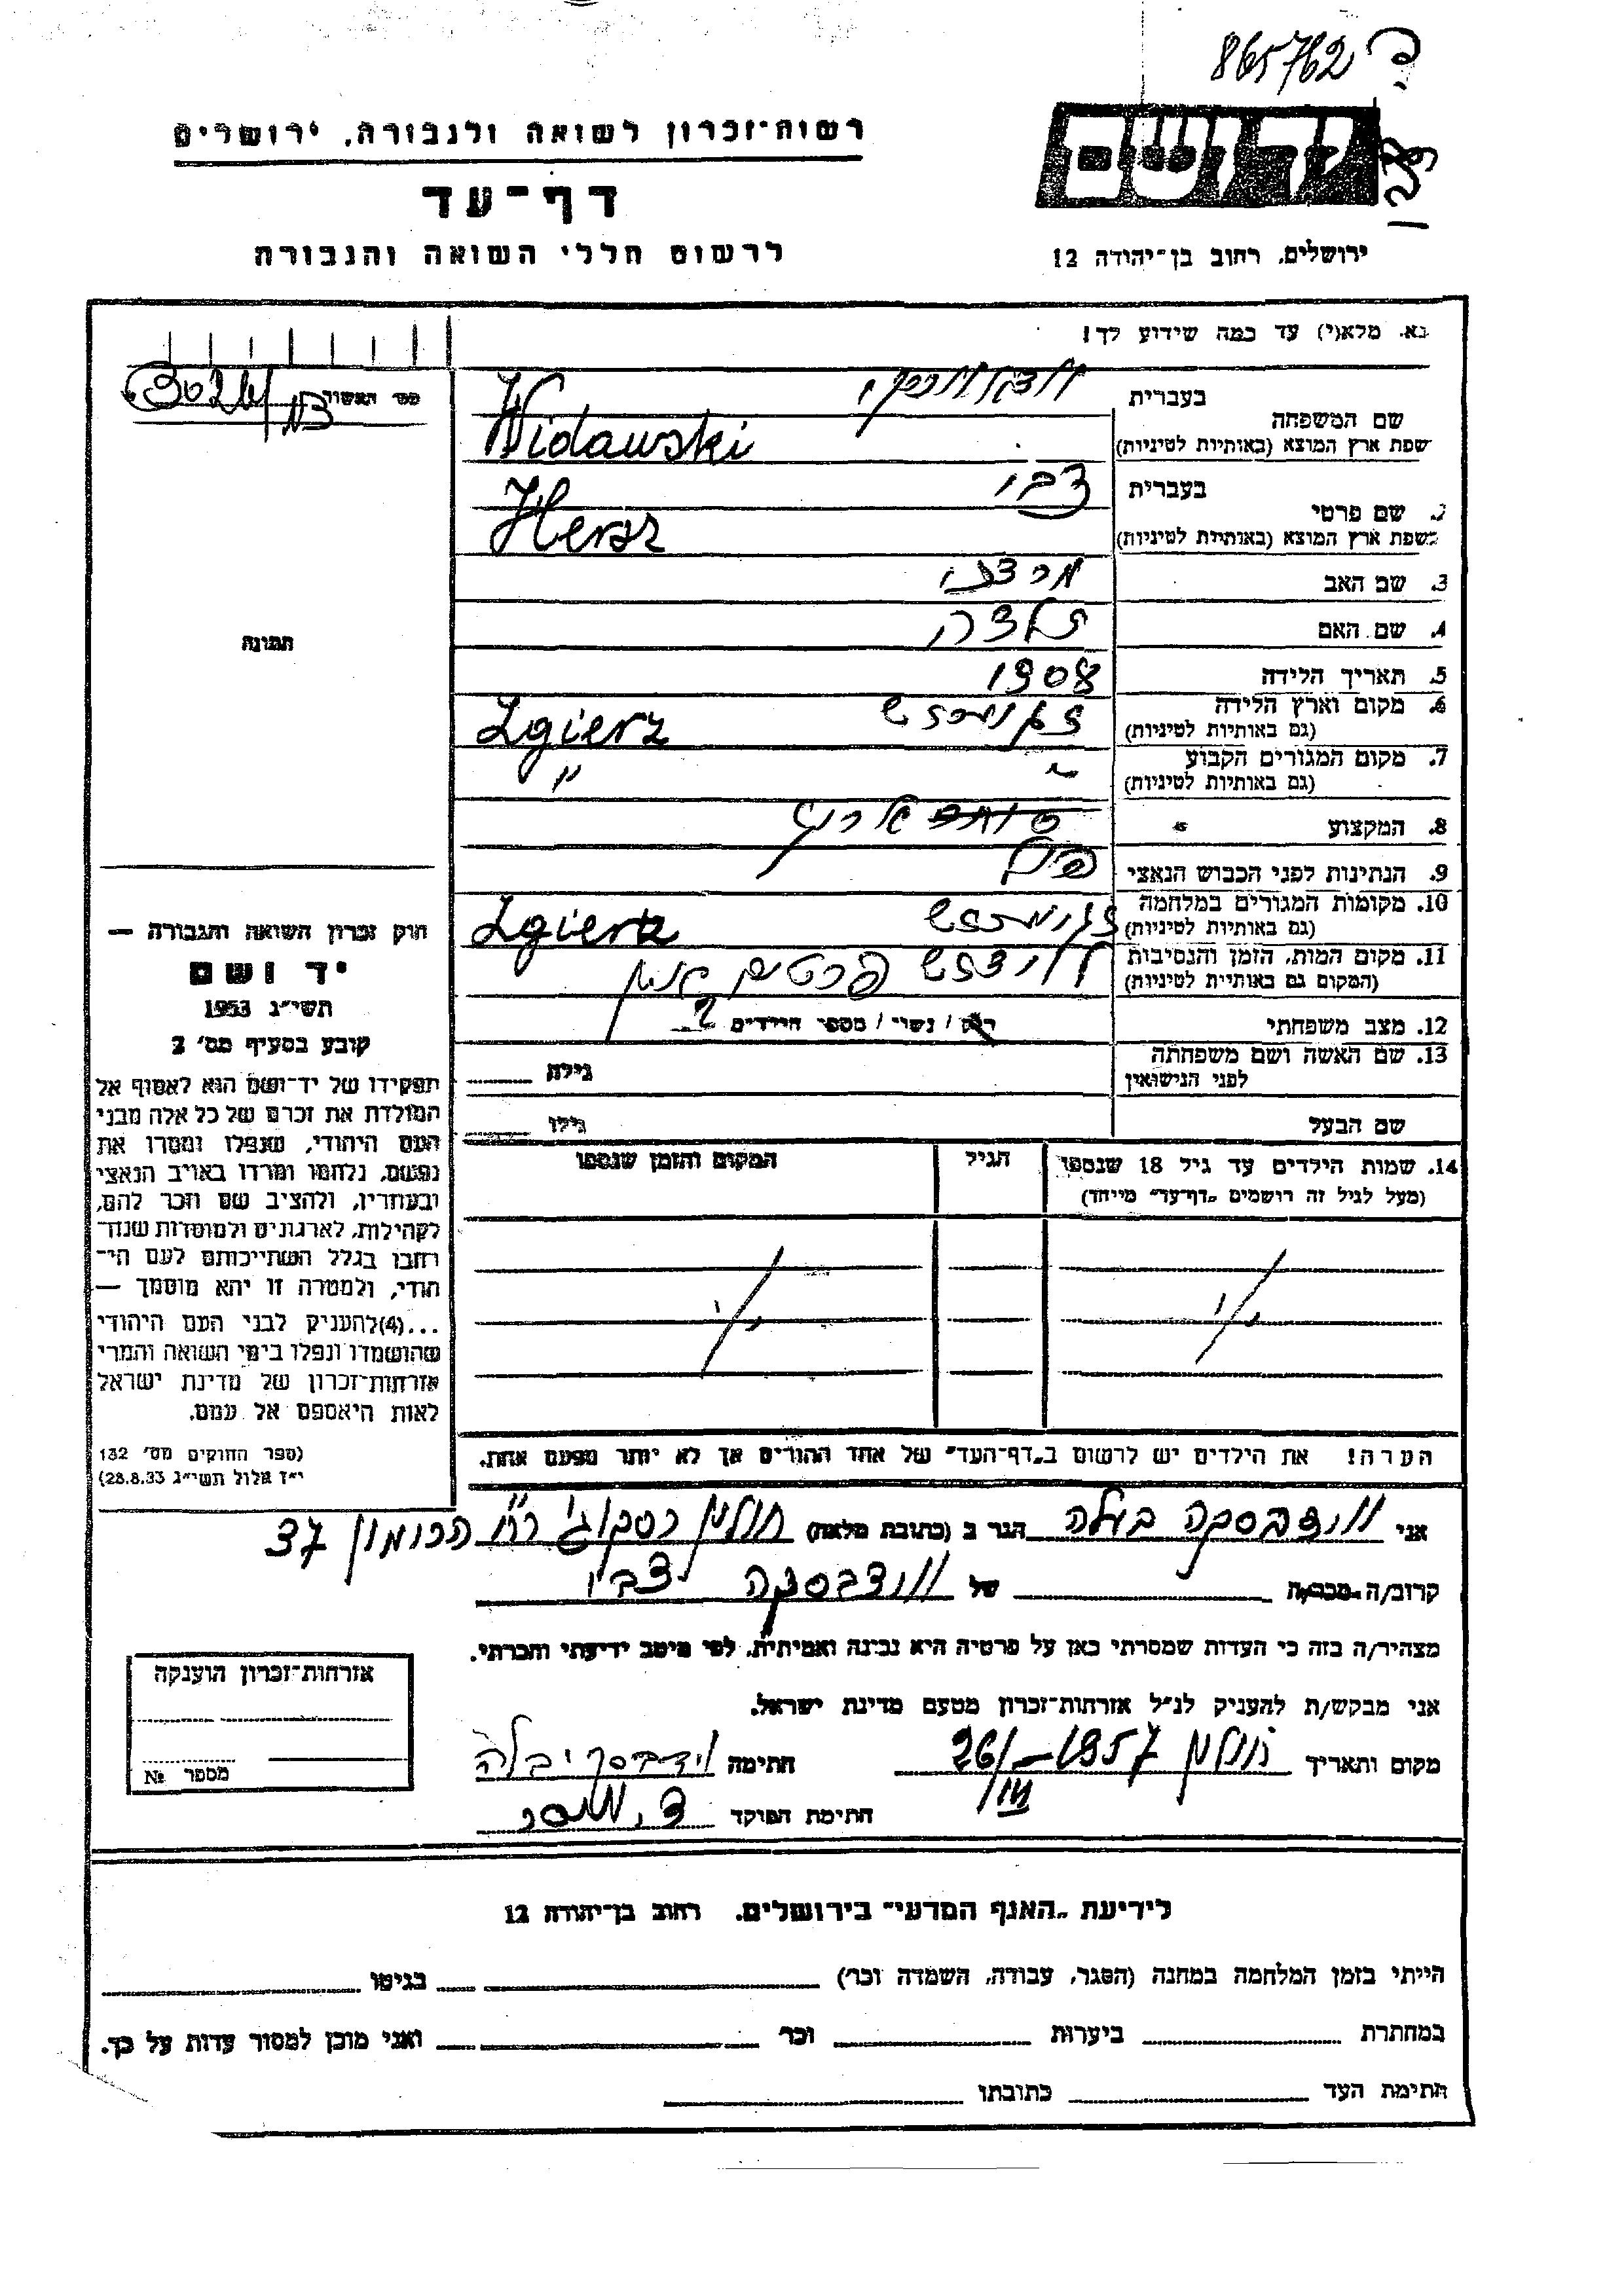 865762
רשות-זכרון לשואה ולגבורה, ירושלים
דף-עד
לרשום חללי השואה והגבורה
יד ושם
ירושלים, רחוב בן-יהודה 12
נא. מלא(י) עד כמה שידוע לך!
שם המשפחה
בעברית
בשפת ארץ המוצא (באותיות לטיניות)
Widawski
2. שם פרטי
בעברית צבי
בשפת ארץ המוצא (באותיות לטיניות)
Hersz
3. שם האב
4. שם האם
5. תאריך הלידה 1908
6. מקום וארץ הלידה
(גם באותיות לטיניות)
Zgierz
7. מקום המגורים הקבוע
(גם באותיות לטיניות)
"
8. המקצוע
9. הנתינות לפני הכבוש הנאצי
10. מקומות המגורים במלחמה
(גם באותיות לטיניות)
Zgierz
11. מקום המות, הזמן והנסיבות
(המקום גם באותיות לטיניות)
12. מצב משפחתי
רווק / נשוי / מספר הילדים 2
13. שם האשה ושם משפחתה
לפני הנישואין
גילה
שם הבעל
גילו
14. שמות הילדים עד גיל 18 שנספו
(מעל לגיל זה רושמים „דף-עד" מיוחד)
הגיל
המקום והזמן שנספו
הערה! את הילדים יש לרשום ב„דף-העד" של אחד ההורים אך לא יותר מפעם אחת.
תמונה
חוק זכרון השואה והגבורה —
יד ושם
תשי"ג 1953
קובע בסעיף מס' 2
תפקידו של יד-ושם הוא לאסוף אל
המולדת את זכרם של כל אלה מבני
העם היהודי, שנפלו ומסרו את
נפשם, נלחמו ומרדו באויב הנאצי
ובעוזריו, ולהציב שם וזכר להם,
לקהילות, לארגונים ולמוסדות שנח-
רבו בגלל השתייכותם לעם הי-
הודי, ולמטרה זו יהא מוסמך —
...(4)להעניק לבני העם היהודי
שהושמדו ונפלו בימי השואה והמרי
אזרחות-זכרון של מדינת ישראל
לאות היאספם אל עמם.
(ספר החוקים מס' 132
י"ז אלול תשי"ג 28.8.53)
אני ווידבסקה בלה הגר ב (כתובת מלאה) חולון רסקוג' רח' הרימון 37
קרוב/ה מכר/ה של ווידבסקה צבי
מצהיר/ה בזה כי העדות שמסרתי כאן על פרטיה היא נכונה ואמיתית, לפי מיטב ידיעתי והכרתי.
אני מבקש/ת להעניק לנ"ל אזרחות-זכרון מטעם מדינת ישראל.
מקום ותאריך חולון 26/III-1957 חתימה וידבסקי בלה
חתימת הפוקד
אזרחות-זכרון הוענקה
מספר №
לידיעת „האגף המדעי" בירושלים. רחוב בן-יהודה 12
הייתי בזמן המלחמה במחנה (הסגר, עבודה, השמדה וכו') בגיטו
במחתרת ביערות וכו' ואני מוכן למסור עדות על כך.
חתימת העד כתובתו